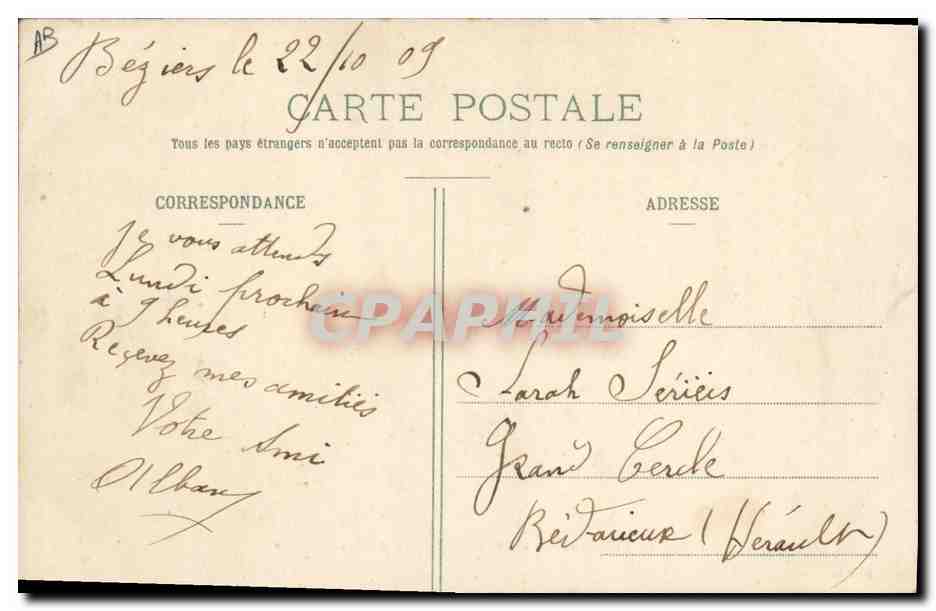 AB
Béziers le 22/10 09
CARTE POSTALE
Tous les pays étrangers n'acceptent pas la correspondance au recto (Se renseigner à la Poste)
CORRESPONDANCE
Je vous attends
Lundi prochain
à 9 heures
Reçevez mes amitiés
Votre Ami
Alban
ADRESSE
Mademoiselle
Sarah Sérïeis
Grand Cercle
Bédarieux (Hérault)
CPAPHIL